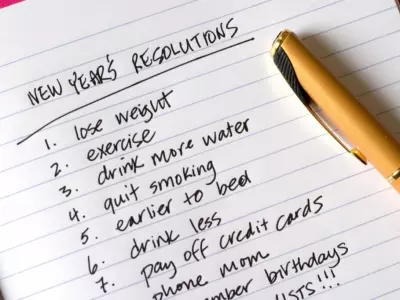 NEW YEAR'S RESOLUTIONS
1. lose weight
2. exercise
3. drink more water
4. quit smoking
5. earlier to bed
6. drink less
7. pay off credit cards
phone mom
mber birthdays
LISTS!!!